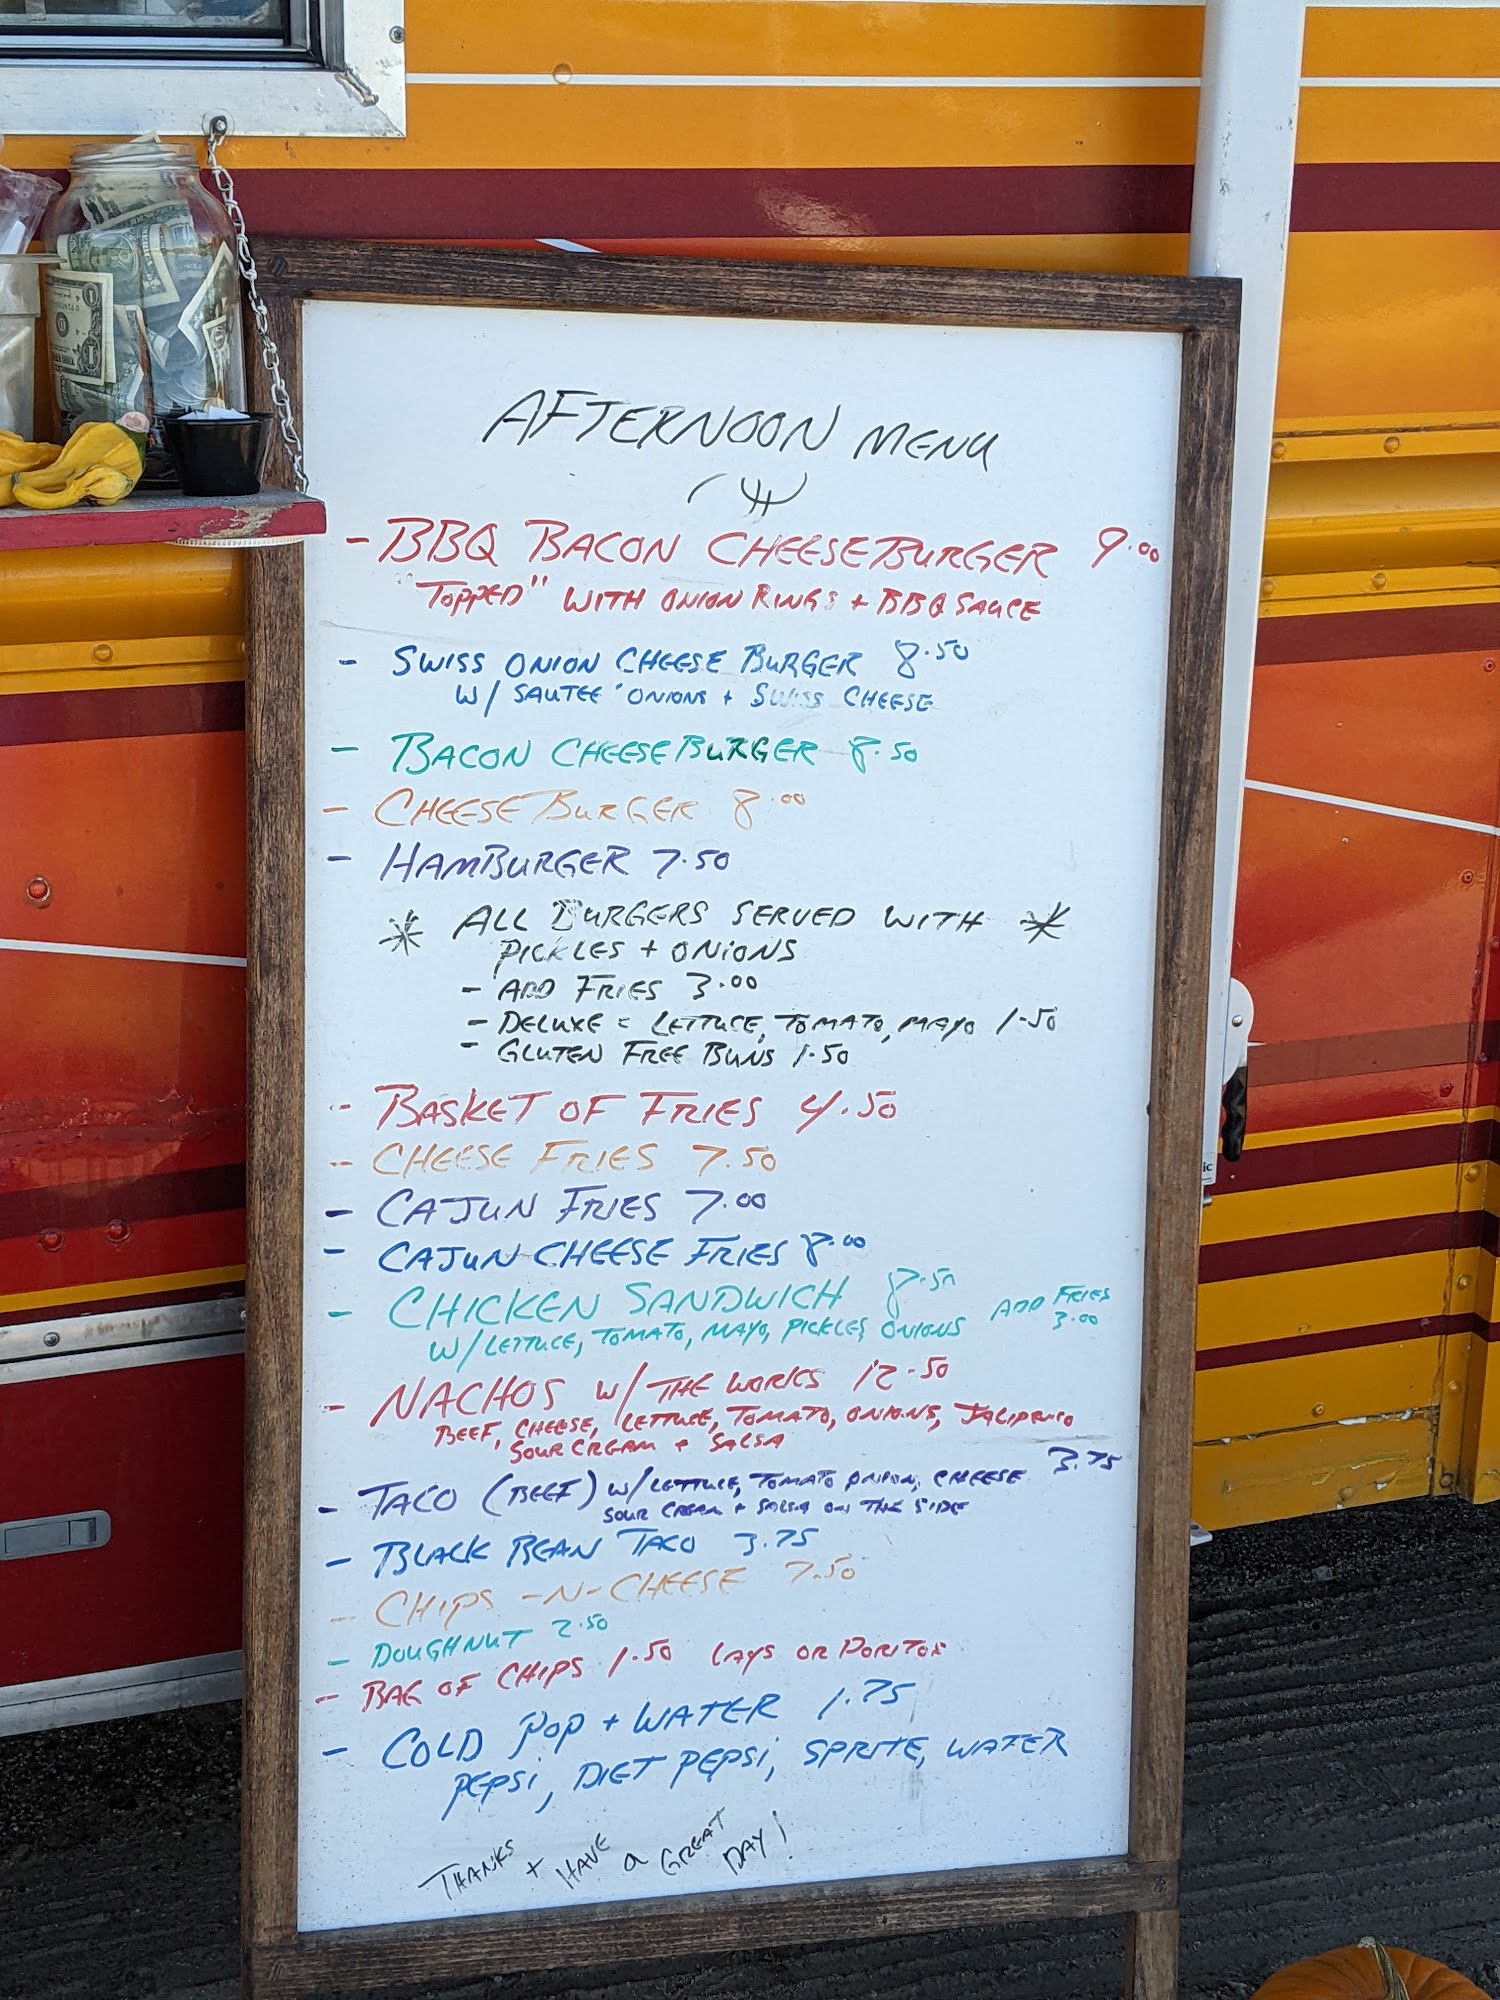 AFTERNOON MENU
- BBQ BACON CHEESEBURGER 9.00
"TOPPED" WITH ONION RINGS + BBQ SAUCE
- SWISS ONION CHEESE BURGER 8.50
W/ SAUTEE' ONIONS + SWISS CHEESE
- BACON CHEESEBURGER 8.50
- CHEESEBURGER 8.00
- HAMBURGER 7.50
* ALL BURGERS SERVED WITH *
PICKLES + ONIONS
- ADD FRIES 3.00
- DELUXE = LETTUCE, TOMATO, MAYO 1.50
- GLUTEN FREE BUNS 1.50
- BASKET OF FRIES 4.50
- CHEESE FRIES 7.50
- CAJUN FRIES 7.00
- CAJUN CHEESE FRIES 8.00
- CHICKEN SANDWICH 8.50 ADD FRIES
W/ LETTUCE, TOMATO, MAYO, PICKLES, ONIONS 3.00
- NACHOS W/ THE WORKS 12.50
BEEF, CHEESE, LETTUCE, TOMATO, ONIONS, JALIPENO
SOUR CREAM + SALSA
- TACO (BEEF) W/ LETTUCE, TOMATO ONION, CHEESE 3.75
SOUR CREAM + SALSA ON THE SIDE
- BLACK BEAN TACO 3.75
- CHIPS -N- CHEESE 7.50
- DOUGHNUT 2.50
- BAG OF CHIPS 1.50 LAYS OR DORITOS
- COLD POP + WATER 1.75
PEPSI, DIET PEPSI, SPRITE, WATER
THANKS + HAVE a GREAT DAY!